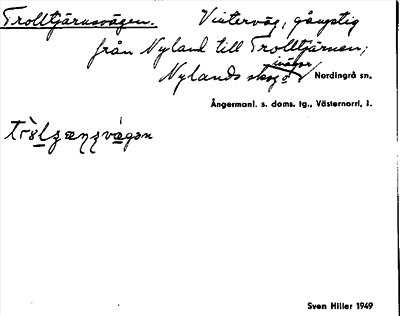 Trolltjärnsvägen. Vinterväg, gångstig
från Nyland till Trolltjärnen;
Nylands skog o Nordingrå sn,
Ångermanl. s. doms. tg., Västernorrl. l.
Sven Hiller 1949